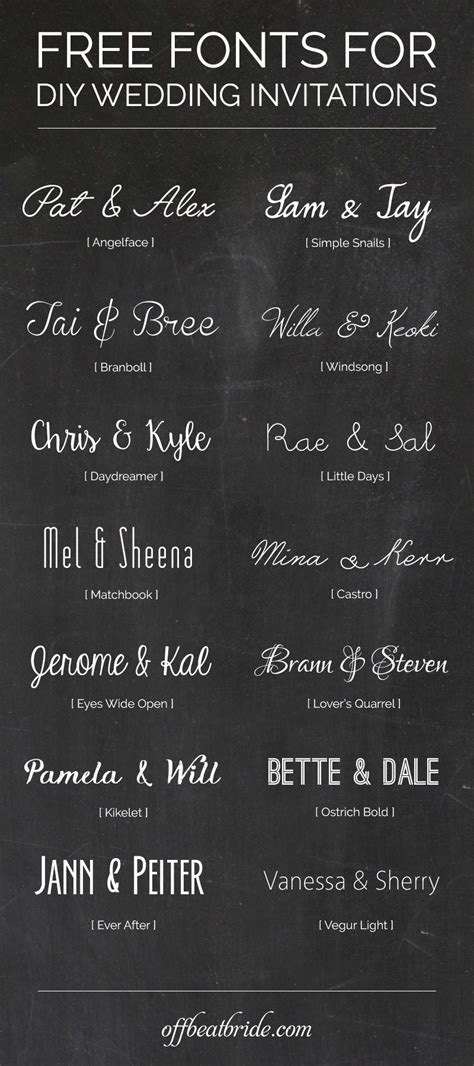 FREE FONTS FOR
DIY WEDDING INVITATIONS
Pat & Alex
[ Angelface ]
Sam & Jay
[ Simple Snails ]
Tai & Bree
[ Branboll ]
Willa & Keoki
[ Windsong ]
Chris & Kyle
[ Daydreamer ]
Rae & Sal
[ Little Days ]
Mel & Sheena
[ Matchbook ]
Mina & Kerr
[ Castro ]
Jerome & Kal
[ Eyes Wide Open ]
Brann & Steven
[ Lover's Quarrel ]
Pamela & Will
[ Kikelet ]
BETTE & DALE
[ Ostrich Bold ]
JANN & PEITER
[ Ever After ]
Vanessa & Sherry
[ Vegur Light ]
offbeatbride.com